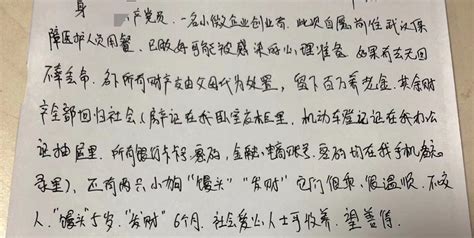 身
产党员,一名小微企业创业者,此次自愿前往武汉保
障医护人员用餐,已做好可能被感染的心理准备,如果有去无回
不幸丢命,名下所有财产友由父母代为处置,留下百万养老金,其余财
产全部回归社会(房产证在我卧室床柜里,机动车登记证在我办公
记抽屉里,所有银行卡卡号、密码,金融、电商账号、密码均在我手机备忘
录里),还有两只小狗"馒头""发财"它们很乖、很温顺、不咬
人,"馒头"5岁,"发财"6个月,社会爱心人士可收养,望善待.